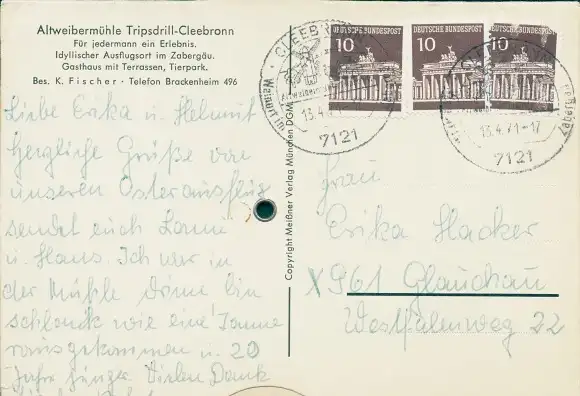 Altweibermühle Tripsdrill-Cleebronn
Für jedermann ein Erlebnis.
Idyllischer Ausflugsort im Zabergäu.
Gasthaus mit Terrassen, Tierpark.
Bes. K. Fischer · Telefon Brackenheim 496
Liebe Erika u. Helmut
herzliche Grüße von
unseren Osterausflug
sendet euch Lanni
u. Hans. Ich war in
der Mühle drinne bin
schlank wie eine Tanne
rausgekommen u. 20
Jahre jünger. Vielen Dank
Copyright Meißner Verlag München DGM
DEUTSCHE BUNDESPOST
10
DEUTSCHE BUNDESPOST
10
DEUTSCHE BUNDESPOST
10
CLEEBR
13.4.71
7121
13.4.71-17
7121
Frau
Erika Hacker
X 961 Glauchau
Westfalenweg 22